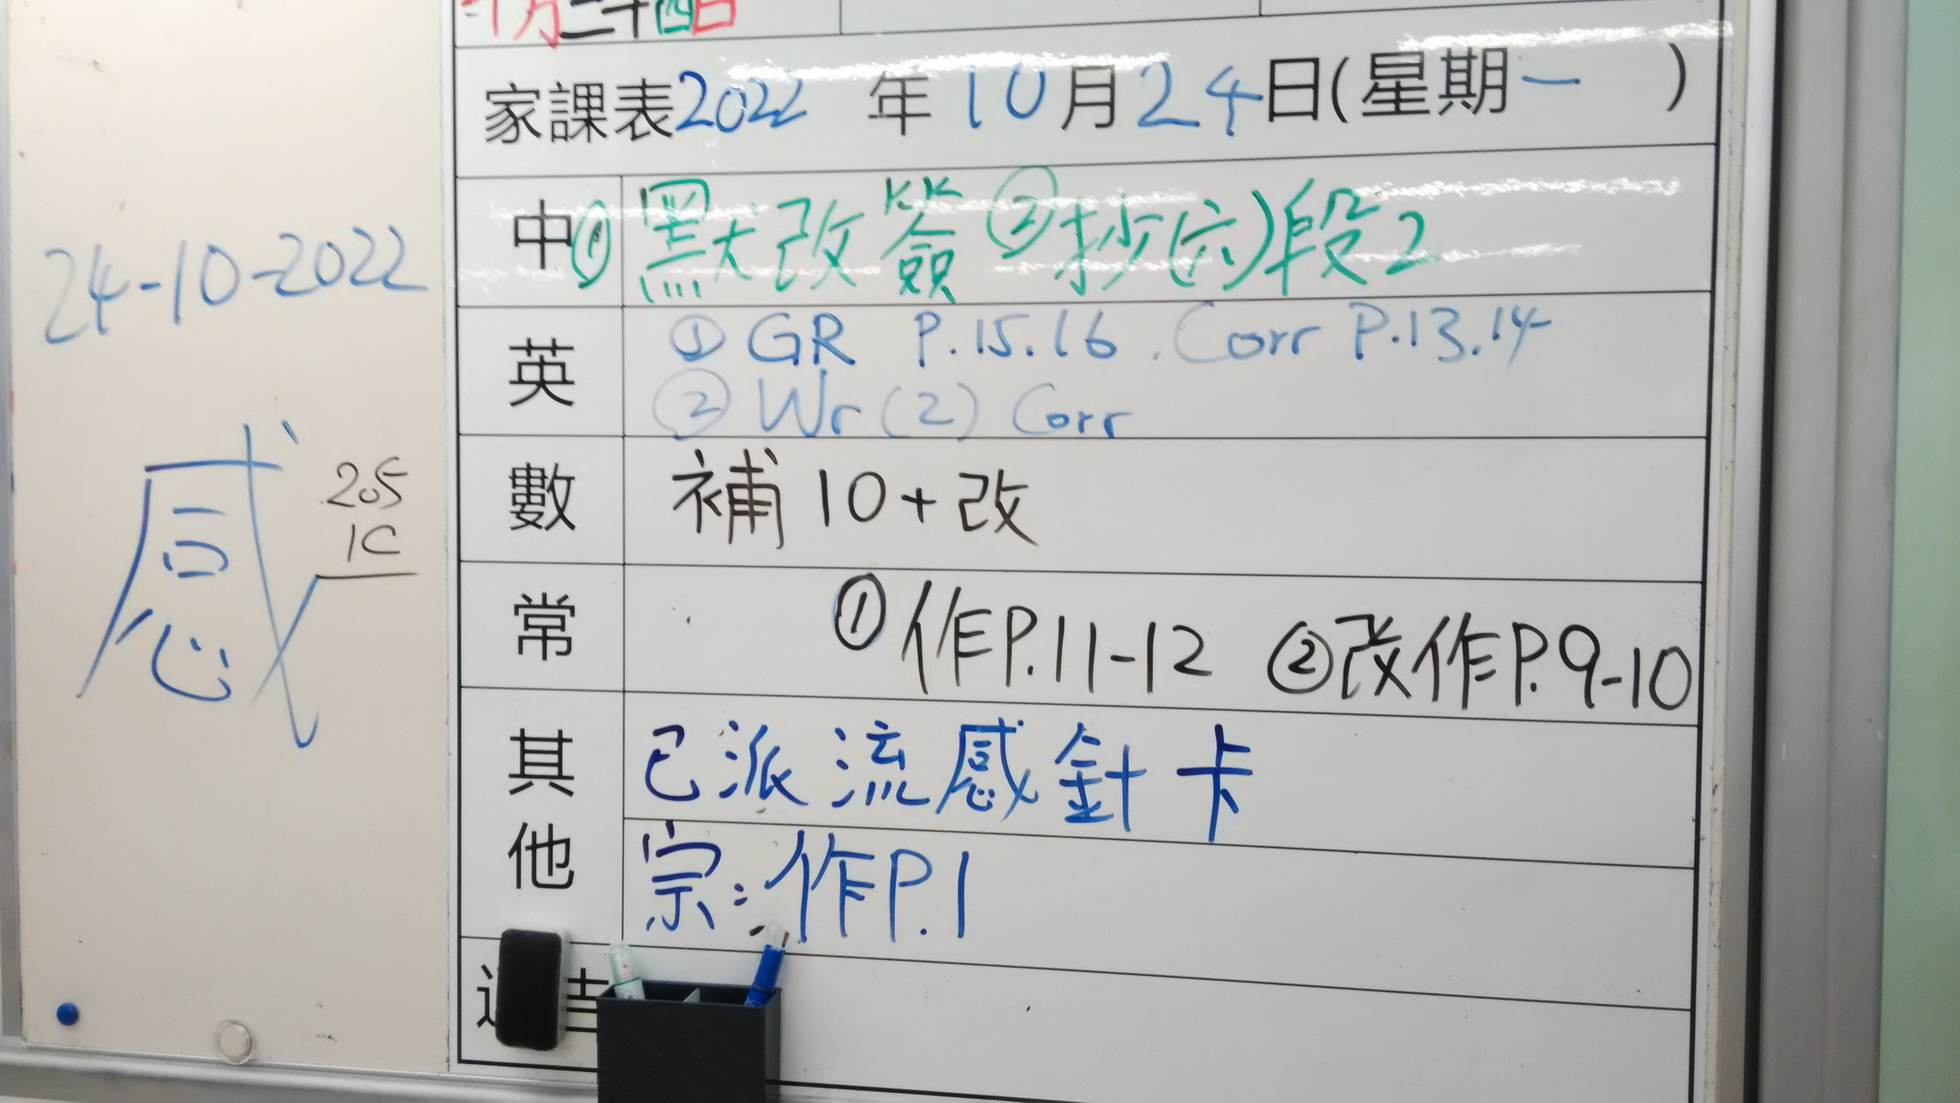 十月二十四日
家課表2022年10月24日(星期一)
24-10-2022
中 ①默改簽 ②抄(六)段2
英 ① GR P.15.16. Corr P.13.14
② Wr (2) Corr
數 補10+改
感 205
1C
常 ①作P.11-12 ②改作P.9-10
其他 已派流感針卡
宗:作P.1